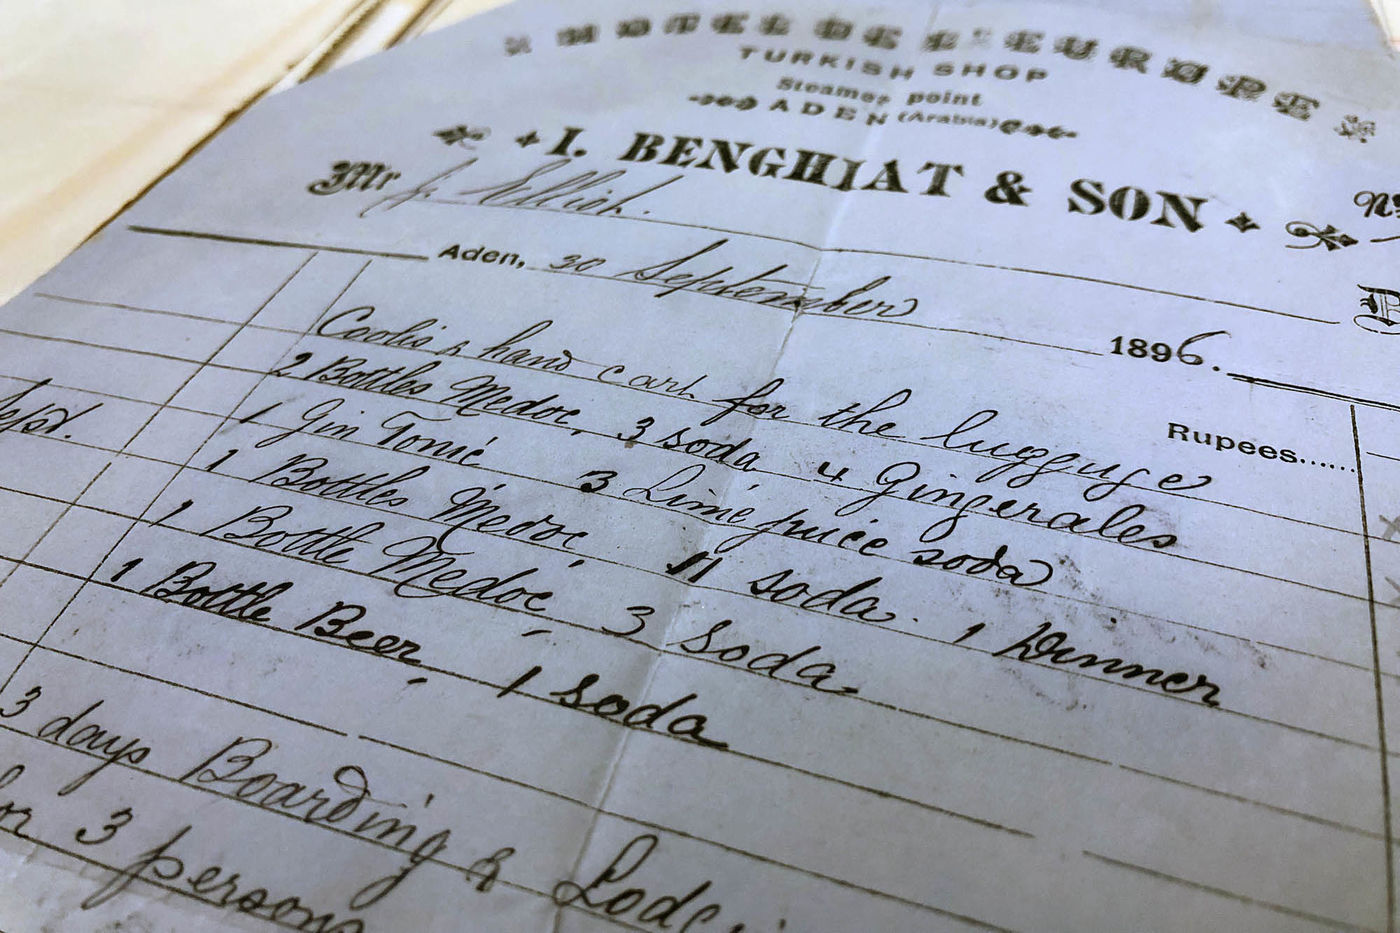 HOTEL DE L'EUROPE
TURKISH SHOP
Steamer point
ADEN (Arabia)
I. BENGHIAT & SON
Mr J. Elliot. No
Aden, 30 September 1896.
Rupees......
Coolis & hand cart for the luggage
2 Bottles Medoc, 3 soda 4 Gingerales
Sept. 1 Gin Tonic 3 Lime juice soda
1 Bottles Medoc, 11 soda. 1 Dinner
1 Bottle Medoc, 3 Soda
1 Bottle Beer, 1 soda
3 days Boarding &
for 3 persons